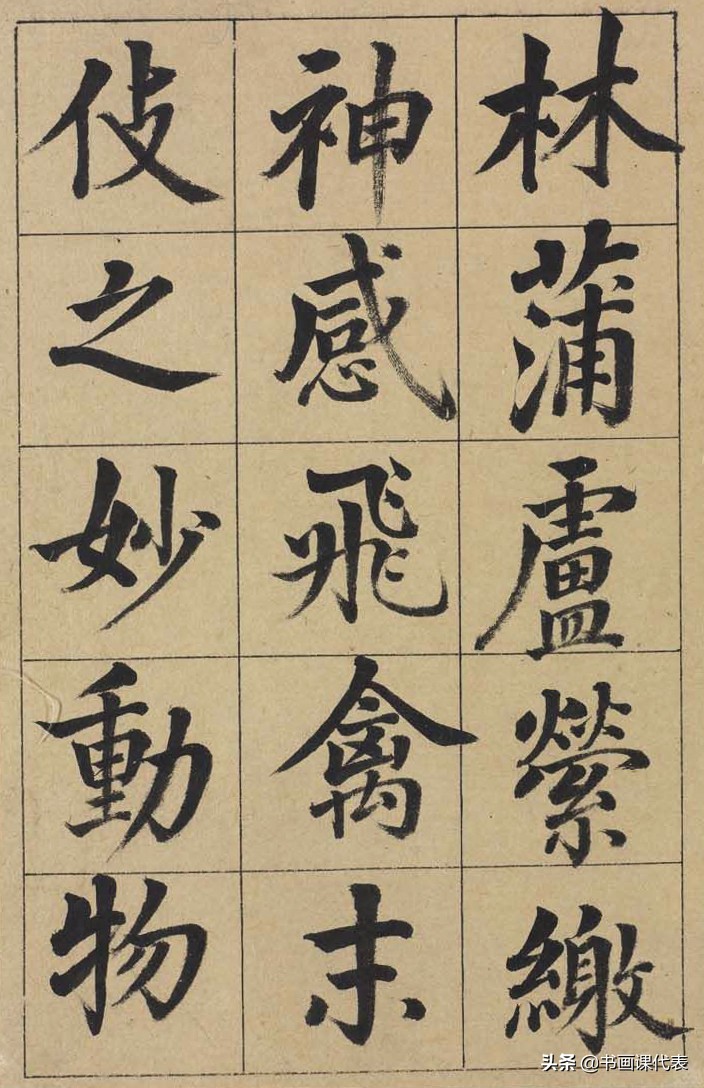 林蒲盧縈繳
神感飛禽末
伎之妙動物
头条 @书画课代表